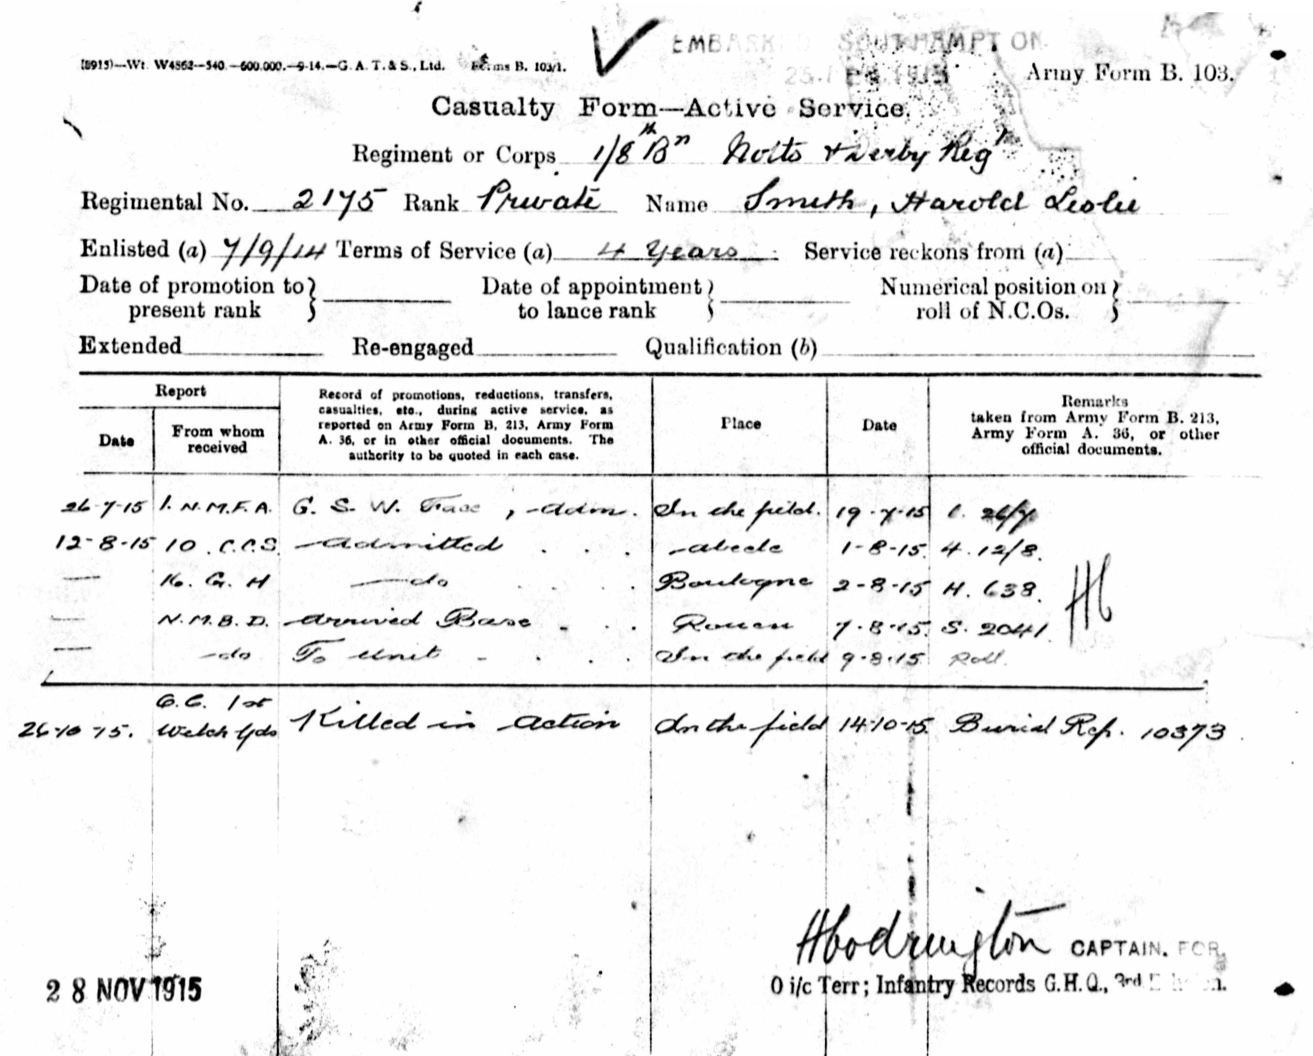 EMBARKED SOUTHAMPTON
(8915)—Wt. W4562—540.—600,000.—9-14.—G. A. T. & S., Ltd. Forms B. 103/1.
Army Form B. 103.
Casualty Form—Active Service.
Regiment or Corps 1/8th Bn Notts & Derby Regt
Regimental No. 2175 Rank Private Name Smith, Harold Leslie
Enlisted (a) 7/9/14 Terms of Service (a) 4 Years. Service reckons from (a)
Date of promotion to present rank } Date of appointment to lance rank } Numerical position on roll of N.C.Os. }
Extended Re-engaged Qualification (b)
Report
Date
From whom received
Record of promotions, reductions, transfers, casualties, etc., during active service, as reported on Army Form B. 213, Army Form A. 36, or in other official documents. The authority to be quoted in each case.
Place
Date
Remarks taken from Army Form B. 213, Army Form A. 36, or other official documents.
26-7-15 1. N.M.F.A. G. S. W. Face, adm. In the field. 19-7-15 26/7
12-8-15 10. C.C.S. Admitted abeele 1-8-15. 4. 12/8.
— 16. G. H —do Boulogne 2-8-15 H. 638.
— N.M.B.D. arrived Base Rouen 7-8-15. S. 2041.
— —do To Unit In the field 9-8-15 Roll.
26-10-15. O.C. 1st Welch Gds Killed in action In the field 14-10-15 Burial Rep. 10373.
HCodrington CAPTAIN. FOR
28 NOV 1915
O i/c Terr; Infantry Records G.H.Q., 3rd